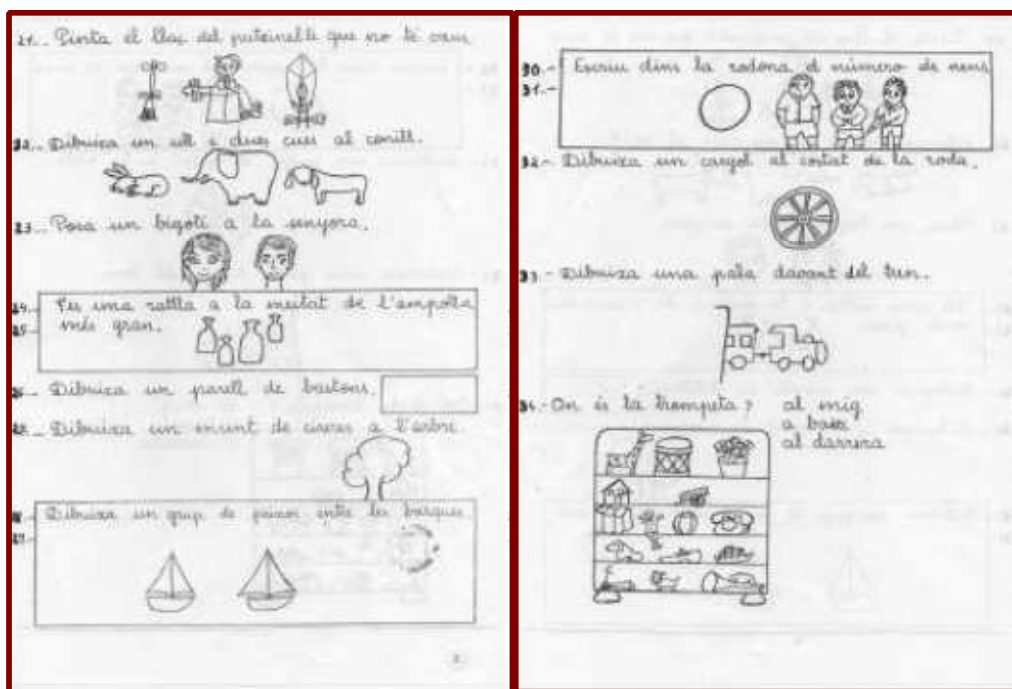 21.- Pinta el llaç del putxinel·li que no té
22.- Dibuixa un ull i dues cues al conill.
23.- Posa un bigoti a la senyora.
24.- Fes una ratlla a la meitat de l'ampolla
25.- més gran.
26.- Dibuixa un parell de bastons.
Dibuixa un munt de cireres a l'arbre.
Dibuixa un grup de peixos entre les barques.
30.- Escriu dins la rodona el número de nens
31.-
32.- Dibuixa un cargol al costat de la roda.
33.- Dibuixa una pala davant del tren.
34.- On és la trompeta? al mig
a baix
al darrera